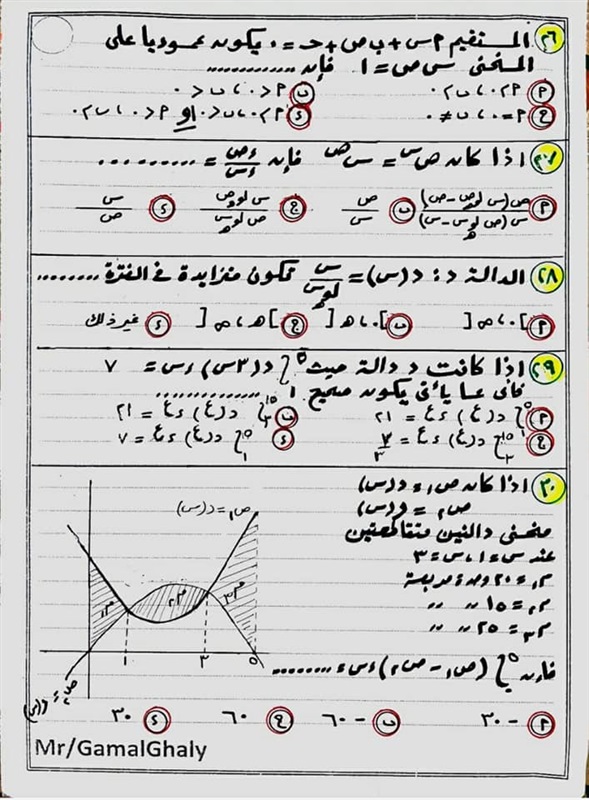 ٢٦ المستقيم م س + ب ص + حـ = ٠ يكون عموديا على
المنحنى س ص = ١ فإن ............
م م > ٠ ، ب > ٠ ب م < ٠ ، ب < ٠
ج م = ٠ ، ب ≠ ٠ د م > ٠ ، ب < ٠ أو م < ٠ ، ب > ٠
٢٧ اذا كان ص^س = س^ص فإن ءص/ءس = ..........
م ص(س لو_هـ ص - ص)/س(ص لو_هـ س - س) ب ص/س ج س لو_هـ ص/ص لو_هـ س د س/ص
٢٨ الدالة د : د(س) = س/لو_هـ س تكون متزايدة فى الفترة ........
م ]٠ ، ∞[ ب ]٠ ، هـ[ ج ]هـ ، ∞[ د غير ذلك
٢٩ إذا كانت د دالة حيث ∫ د(٣س) ءس = ٧
فأى مما يأتى يكون صحيح ............
م ∫ د(ع) ءع = ٢١ ب ∫ د(ع) ءع = ٢١
ج ∫ د(ع) ءع = ٧/٣ د ∫ د(ع) ءع = ٧
٣٠ اذا كان ص١ = د(س)
ص٢ = ر(س)
منحنى دالتين متقاطعتين
عند س = ١ ، س = ٣
م١ = ٢٠ وحدة مربعة
م٢ = ١٥ ,, ,,
م٣ = ٢٥ ,, ,,
فإن ∫ (ص١ - ص٢) ءس = ........
ص١ = د(س)
م١ م٢ م٣
١ ٣ ٥
ص٢ = ر(س)
م - ٣٠ ب - ٦٠ ج ٦٠ د ٣٠
Mr/GamalGhaly